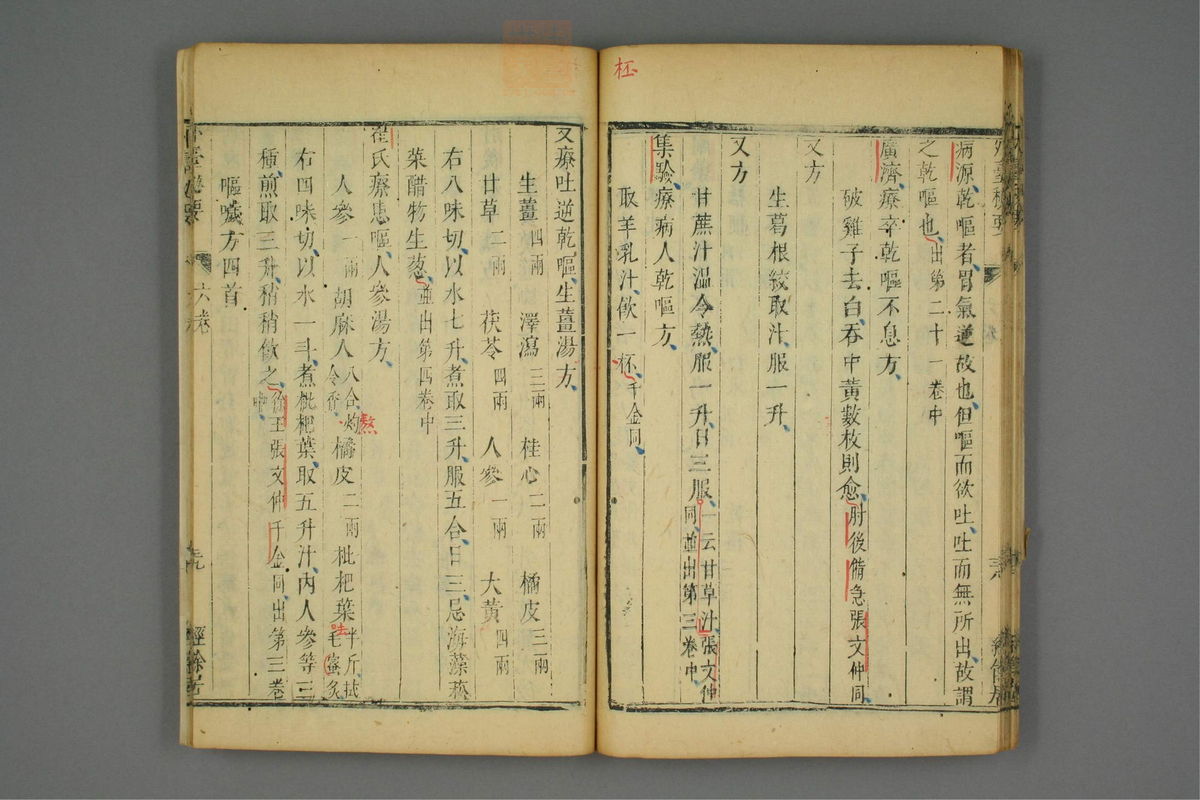 杯
病源乾嘔者胃氣逆故也但嘔而欲吐吐而無所出故謂
之乾嘔也出第二十一卷中
廣濟療卒乾嘔不息方
破雞子去白吞中黃數枚則愈肘後備急張文仲同
又方
生葛根絞取汁服一升
又方
甘蔗汁溫令熱服一升日三服一云甘草汁張文仲
同並出第三卷中
集驗療病人乾嘔方
取羊乳汁飲一杯千金同
又療吐逆乾嘔生薑湯方
生薑四兩 澤瀉三兩 桂心二兩 橘皮三兩
甘草二兩 茯苓四兩 人參一兩 大黃四兩
右八味切以水七升煮取三升服五合日三忌海藻菘
菜醋物生葱並出第四卷中
崔氏療患嘔人參湯方
人參一兩 胡麻人八合灼
令香 熬 橘皮二兩 枇杷葉半斤拭
毛蜜炙 去
右四味切以水一斗煮枇杷葉取五升汁內人參等三
種煎取三升稍稍飲之徐王張文仲千金同出第三卷
中
嘔噦方四首
六卷
經餘居